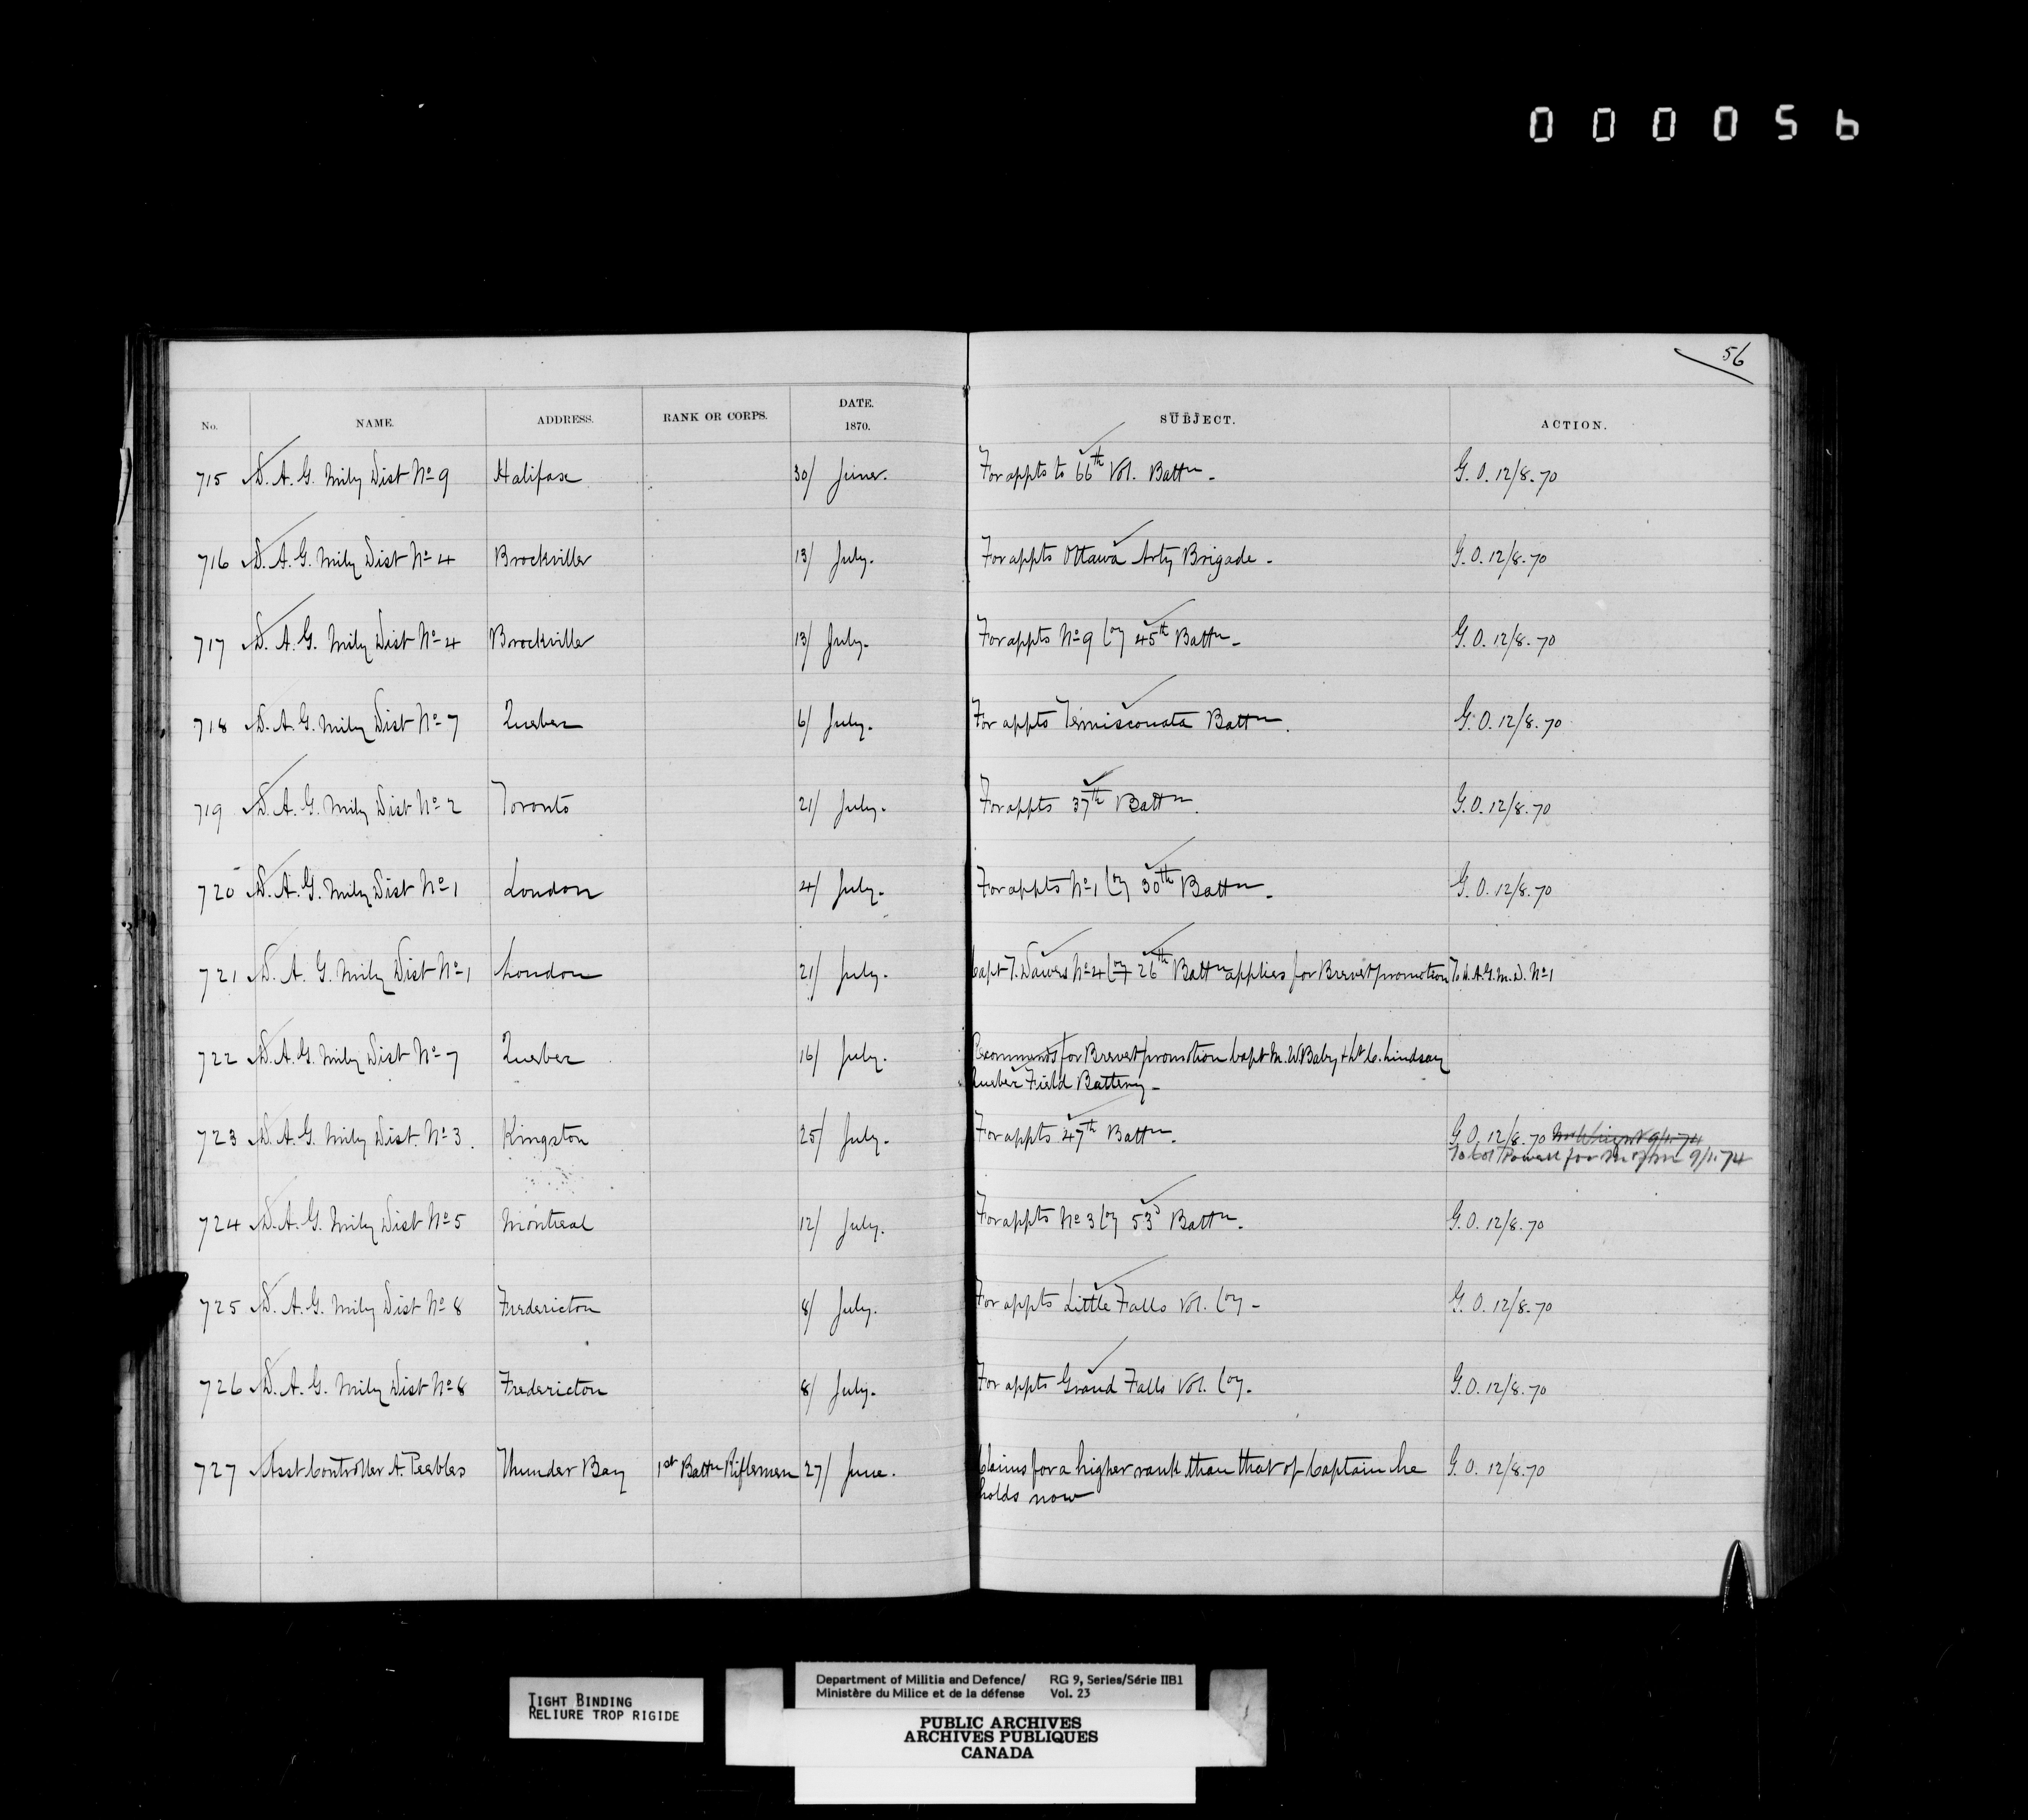 0 0 0 0 5 6
56
No. NAME. ADDRESS. RANK OR CORPS. DATE. 1870. SUBJECT. ACTION.
715 D. A. G. Mily Dist No 9 Halifax 30/ June. For appts to 66th Vol. Battn - G. O. 12/8.70
716 D. A. G. Mily Dist No 4 Brockville 13/ July. For appts Ottawa Arty Brigade - G. O. 12/8.70
717 D. A. G. Mily Dist No 4 Brockville 13/ July. For appts No 9 Coy 45th Battn - G. O. 12/8.70
718 D. A. G. Mily Dist No 7 Quebec 6/ July. For appts Temisconata Battn. G. O. 12/8.70
719 D. A. G. Mily Dist No 2 Toronto 21/ July. For appts 37th Battn. G. O. 12/8.70
720 D. A. G. Mily Dist No 1 London 4/ July. For appts No 1 Coy 30th Battn - G. O. 12/8.70
721 D. A. G. Mily Dist No 1 London 21/ July. Capt T. Dawes No 4 Coy 26th Battn applies for Brevet promotion To D.A.G.M.D. No 1
722 D. A. G. Mily Dist No 7 Quebec 16/ July. Recommends for Brevet promotion Capt M. W Baby & Lt C. Lindsay
Quebec Field Battery -
723 D. A. G. Mily Dist. No 3. Kingston 25/ July. For appts 47th Battn. G. O. 12/8.70 9/1.74
To Col Powell for 9/1.74
724 D. A. G. Mily Dist No 5 Montreal 12/ July. For appts No 3 Coy 53d Battn. G. O. 12/8.70
725 D. A. G. Mily Dist No 8 Fredericton 8/ July. For appts Little Falls Vol. Coy - G. O. 12/8.70
726 D. A. G. Mily Dist No 8 Fredericton 8/ July. For appts Grand Falls Vol. Coy. G. O. 12/8.70
727 Asst Controller A. Peebles Thunder Bay 1st Battn Riflemen 27/ June. Claims for a higher rank than that of Captain he G. O. 12/8.70
holds now
TIGHT BINDING
RELIURE TROP RIGIDE
Department of Militia and Defence/ RG 9, Series/Série IIB1
Ministère du Milice et de la défense Vol. 23
PUBLIC ARCHIVES
ARCHIVES PUBLIQUES
CANADA